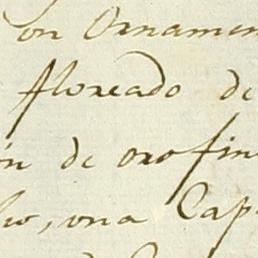 on Ornamen
floreado de
ón de oro fin
ho, una Cap